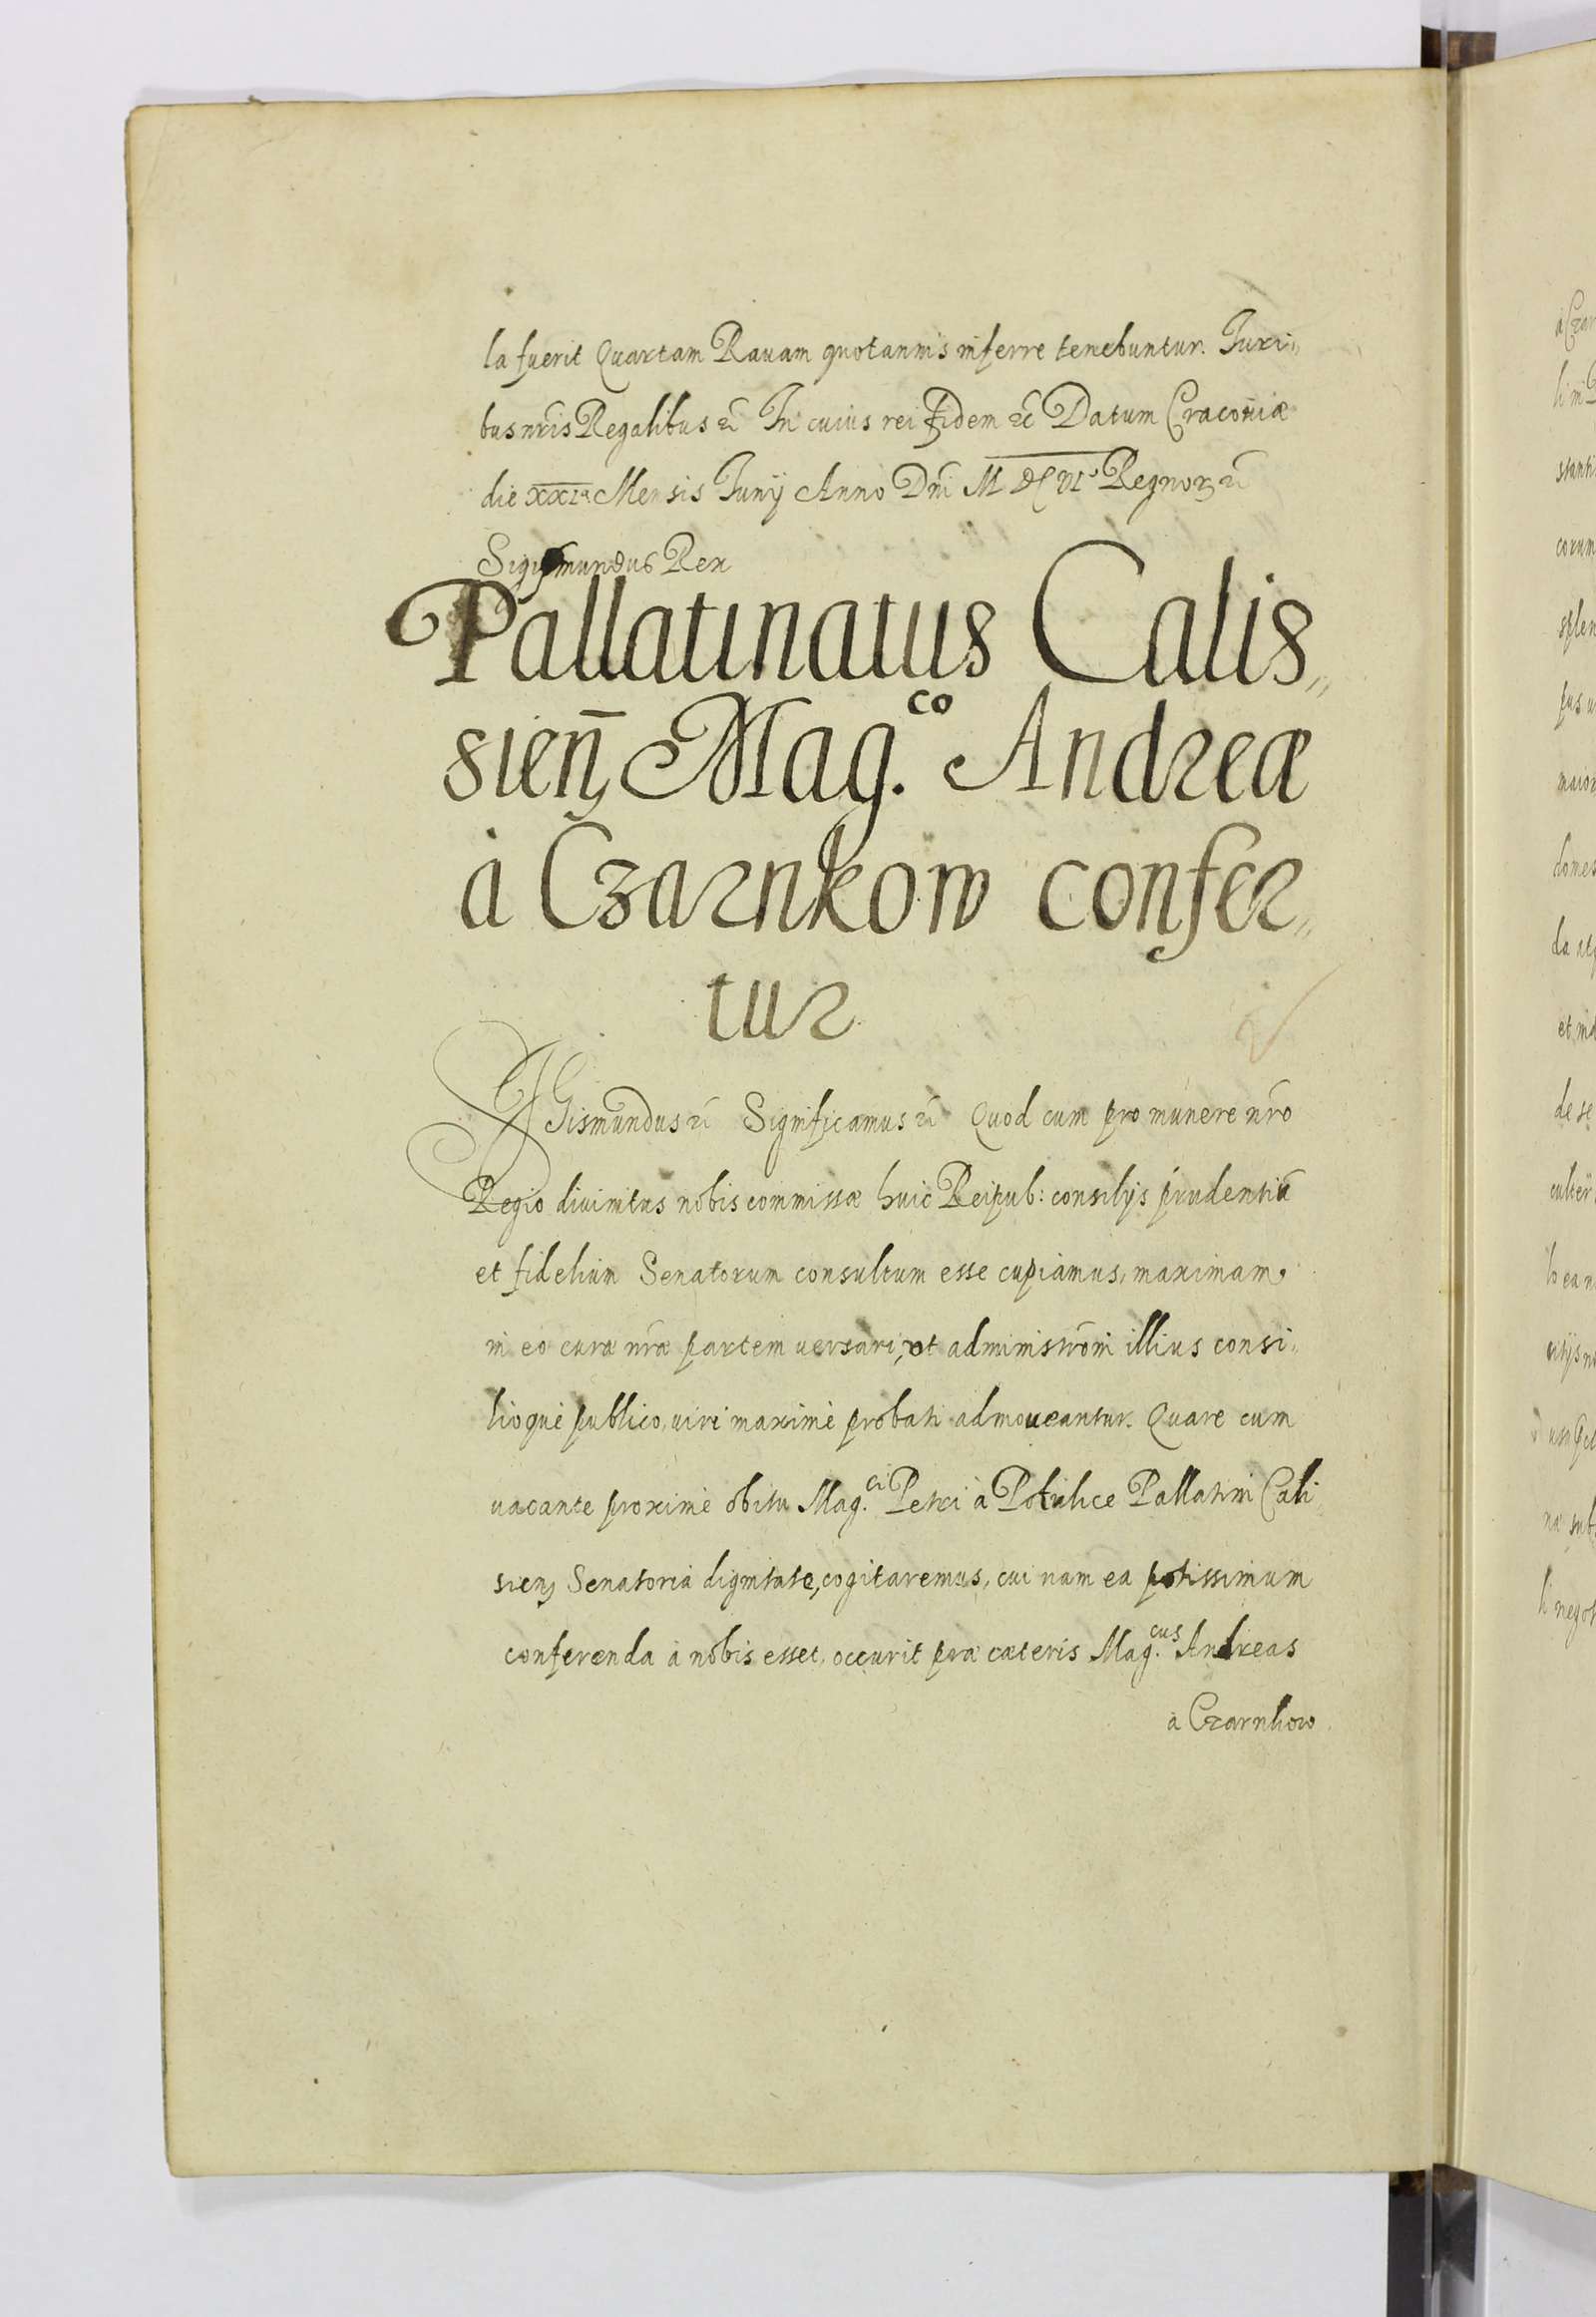 la fuerit Quartam Rauam quotannis inferre tenebuntur. Juri„
bus nr̃is Regalibus ec̃ In cuius rei fidem ec̃ Datum Cracoviæ
die XXIª Mensis Junij Anno Dnĩ MDCVIº Regnorꝫ ec̃
Sigismundus Rex
Pallatinatus Calis„
sien̄ Mag.co Andreæ
à Czarnkow confer„
tur.
SIGismundus ec̃ Significamus ec̃ Quod cum pro munere nr̃o
Regio diuinitus nobis commissæ huic Reipub: consilijs prudentiũ
et fidelium Senatorum consultum esse cupiamus, maximam
in eo curæ nr̃æ partem uersari, ut administrõni illius consi„
lioque publico, uiri maximè probati admoueantur. Quare cum
uacante proximè obitu Mag.ci Petri à Potulice Pallatini Cali„
sienꝫ Senatoria dignitate, cogitaremus, cui nam ea potissimum
conferenda à nobis esset, occurit præ cæteris Mag.cus Andreas
à Czarnkow